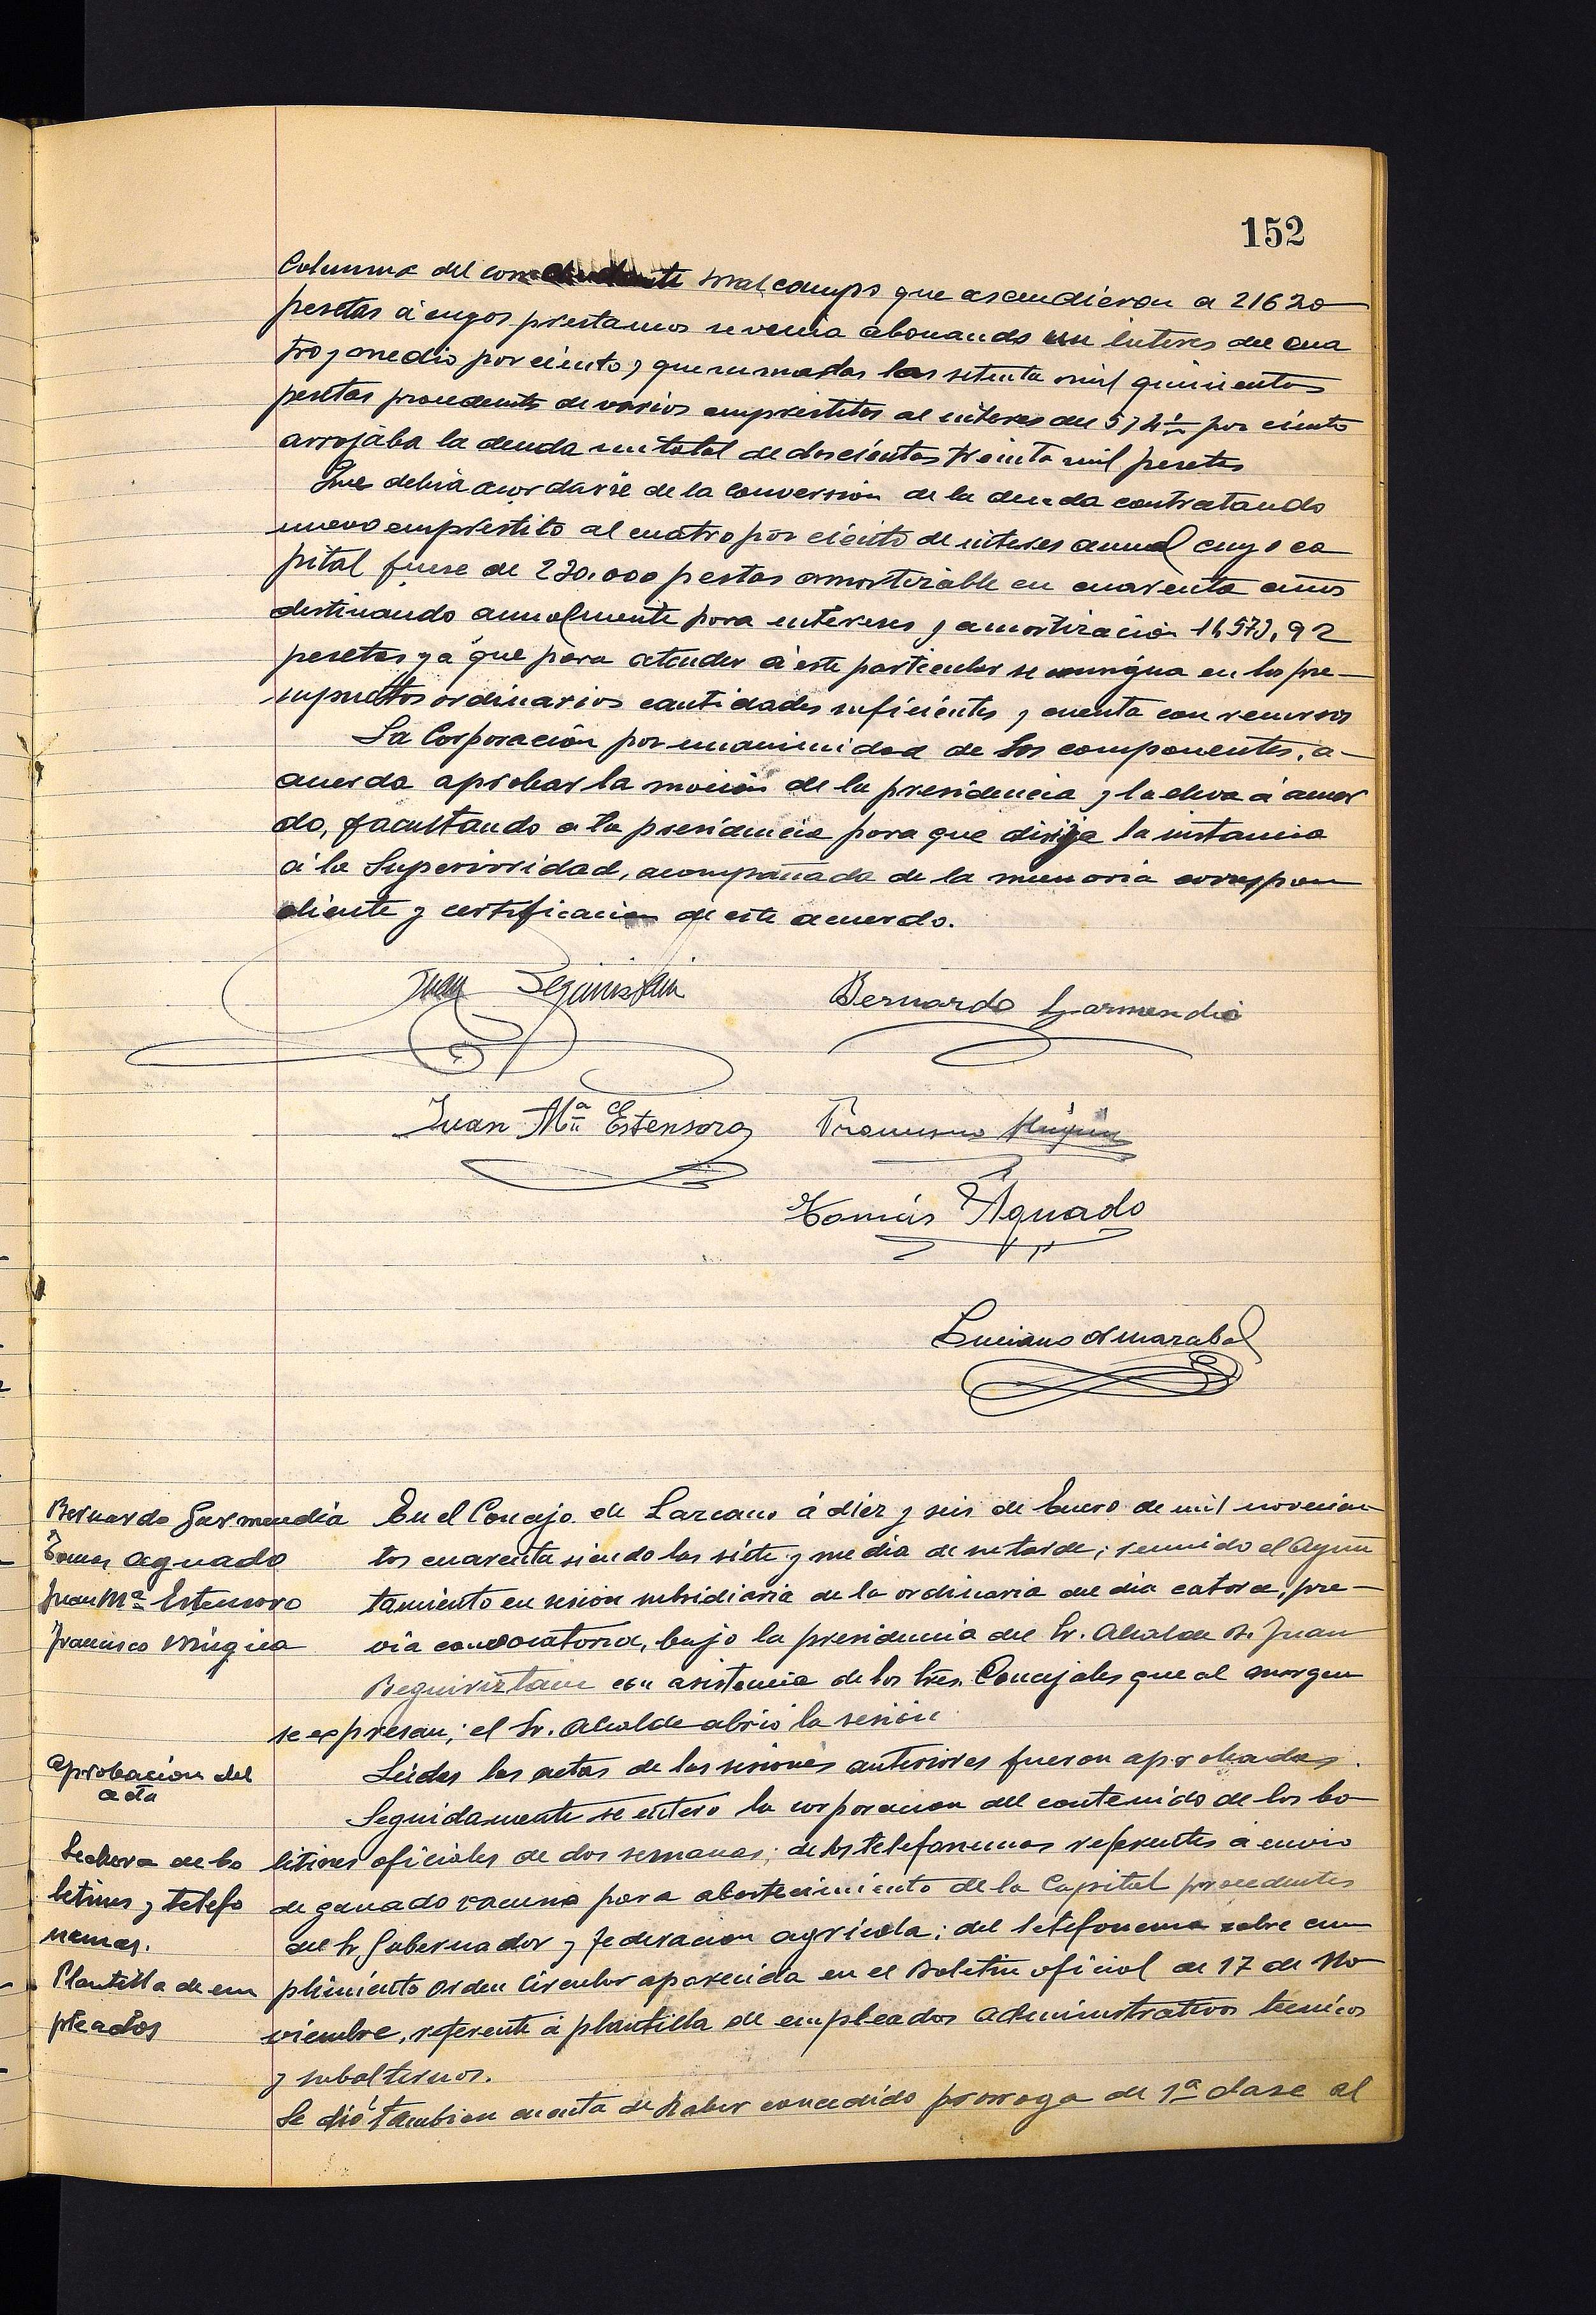 152
Columna del comandante malcampo que ascendieron a 21620
pesetas á cuyos prestamos se venia abonando un interes del cua
tro y medio por ciento y que sumadas las setenta mil quinientas
pesetas procedente de varios emprestitos al interes del 5 y 4 ½ por ciento
arrojaba la deuda un total de doscientas treinta mil pesetas
Que debia acordarse de la conversión de la deuda contratando
nuevo emprestito al cuatro por ciento de interes anual cuyo ca
pital fuese de 230.000 pestas amortizable en cuarenta años
destinando anualmente para intereses y amortización
pesetas ya que para atender á este particular se consigna en los pre-
supuestos ordinarios cantidades suficientes y cuenta con recursos
La Corporación por unanimidad de los componentes, a-
cuerda aprobar la moción de la presidencia y la eleva á acuer
do, facultando a la presidencia para que dirija la instancia
á la Superioridad, acompañada de la memoria correspon
diente y certificacion de este acuerdo.
Juan
Bernardo Garmendia
Juan Mª Estensoro
Francisco Múgica
Tomás Aguado
Luciano Amarabal
Bernardo Garmendia
En el Concejo de Lazcano á diez y seis de Enero de mil novecien
Tomas Aguado
tos cuarenta siendo las siete y media de su tarde; reunido el Ayun
Juan Mª Estensoro
tamiento en sesión subsidiaria de la ordinaria del dia catorce, pre-
Francisco Múgica
via convocatoria, bajo la presidencia del Sr. Alcalde D. Juan
Beguiriztain con asistencia de los Sres. Concejales que al margen
se expresan; el Sr. Alcalde abrió la sesión
Aprobacion del
acta
Leidas las actas de las sesiones anteriores fueron aprobadas.
Seguidamente se enteró la corporacion del contenido de los bo
Lectura de bo
letines oficiales de dos semanas; de los telefonemas referentes á envio
letines y telefo
de ganado vacuno para abastecimiento de la Capital procedentes
nemas.
del Sr. Gobernador y Federacion agricola; del telefonema sobre cum
Plantilla de em
plimiento orden Circular aparecida en el Boletin oficial de 17 de No
pleados
viembre, referente á plantilla de empleados administrativos tecnicos
y subalternos.
Se dió tambien cuenta de haber concedido prorroga de 1ª clase al